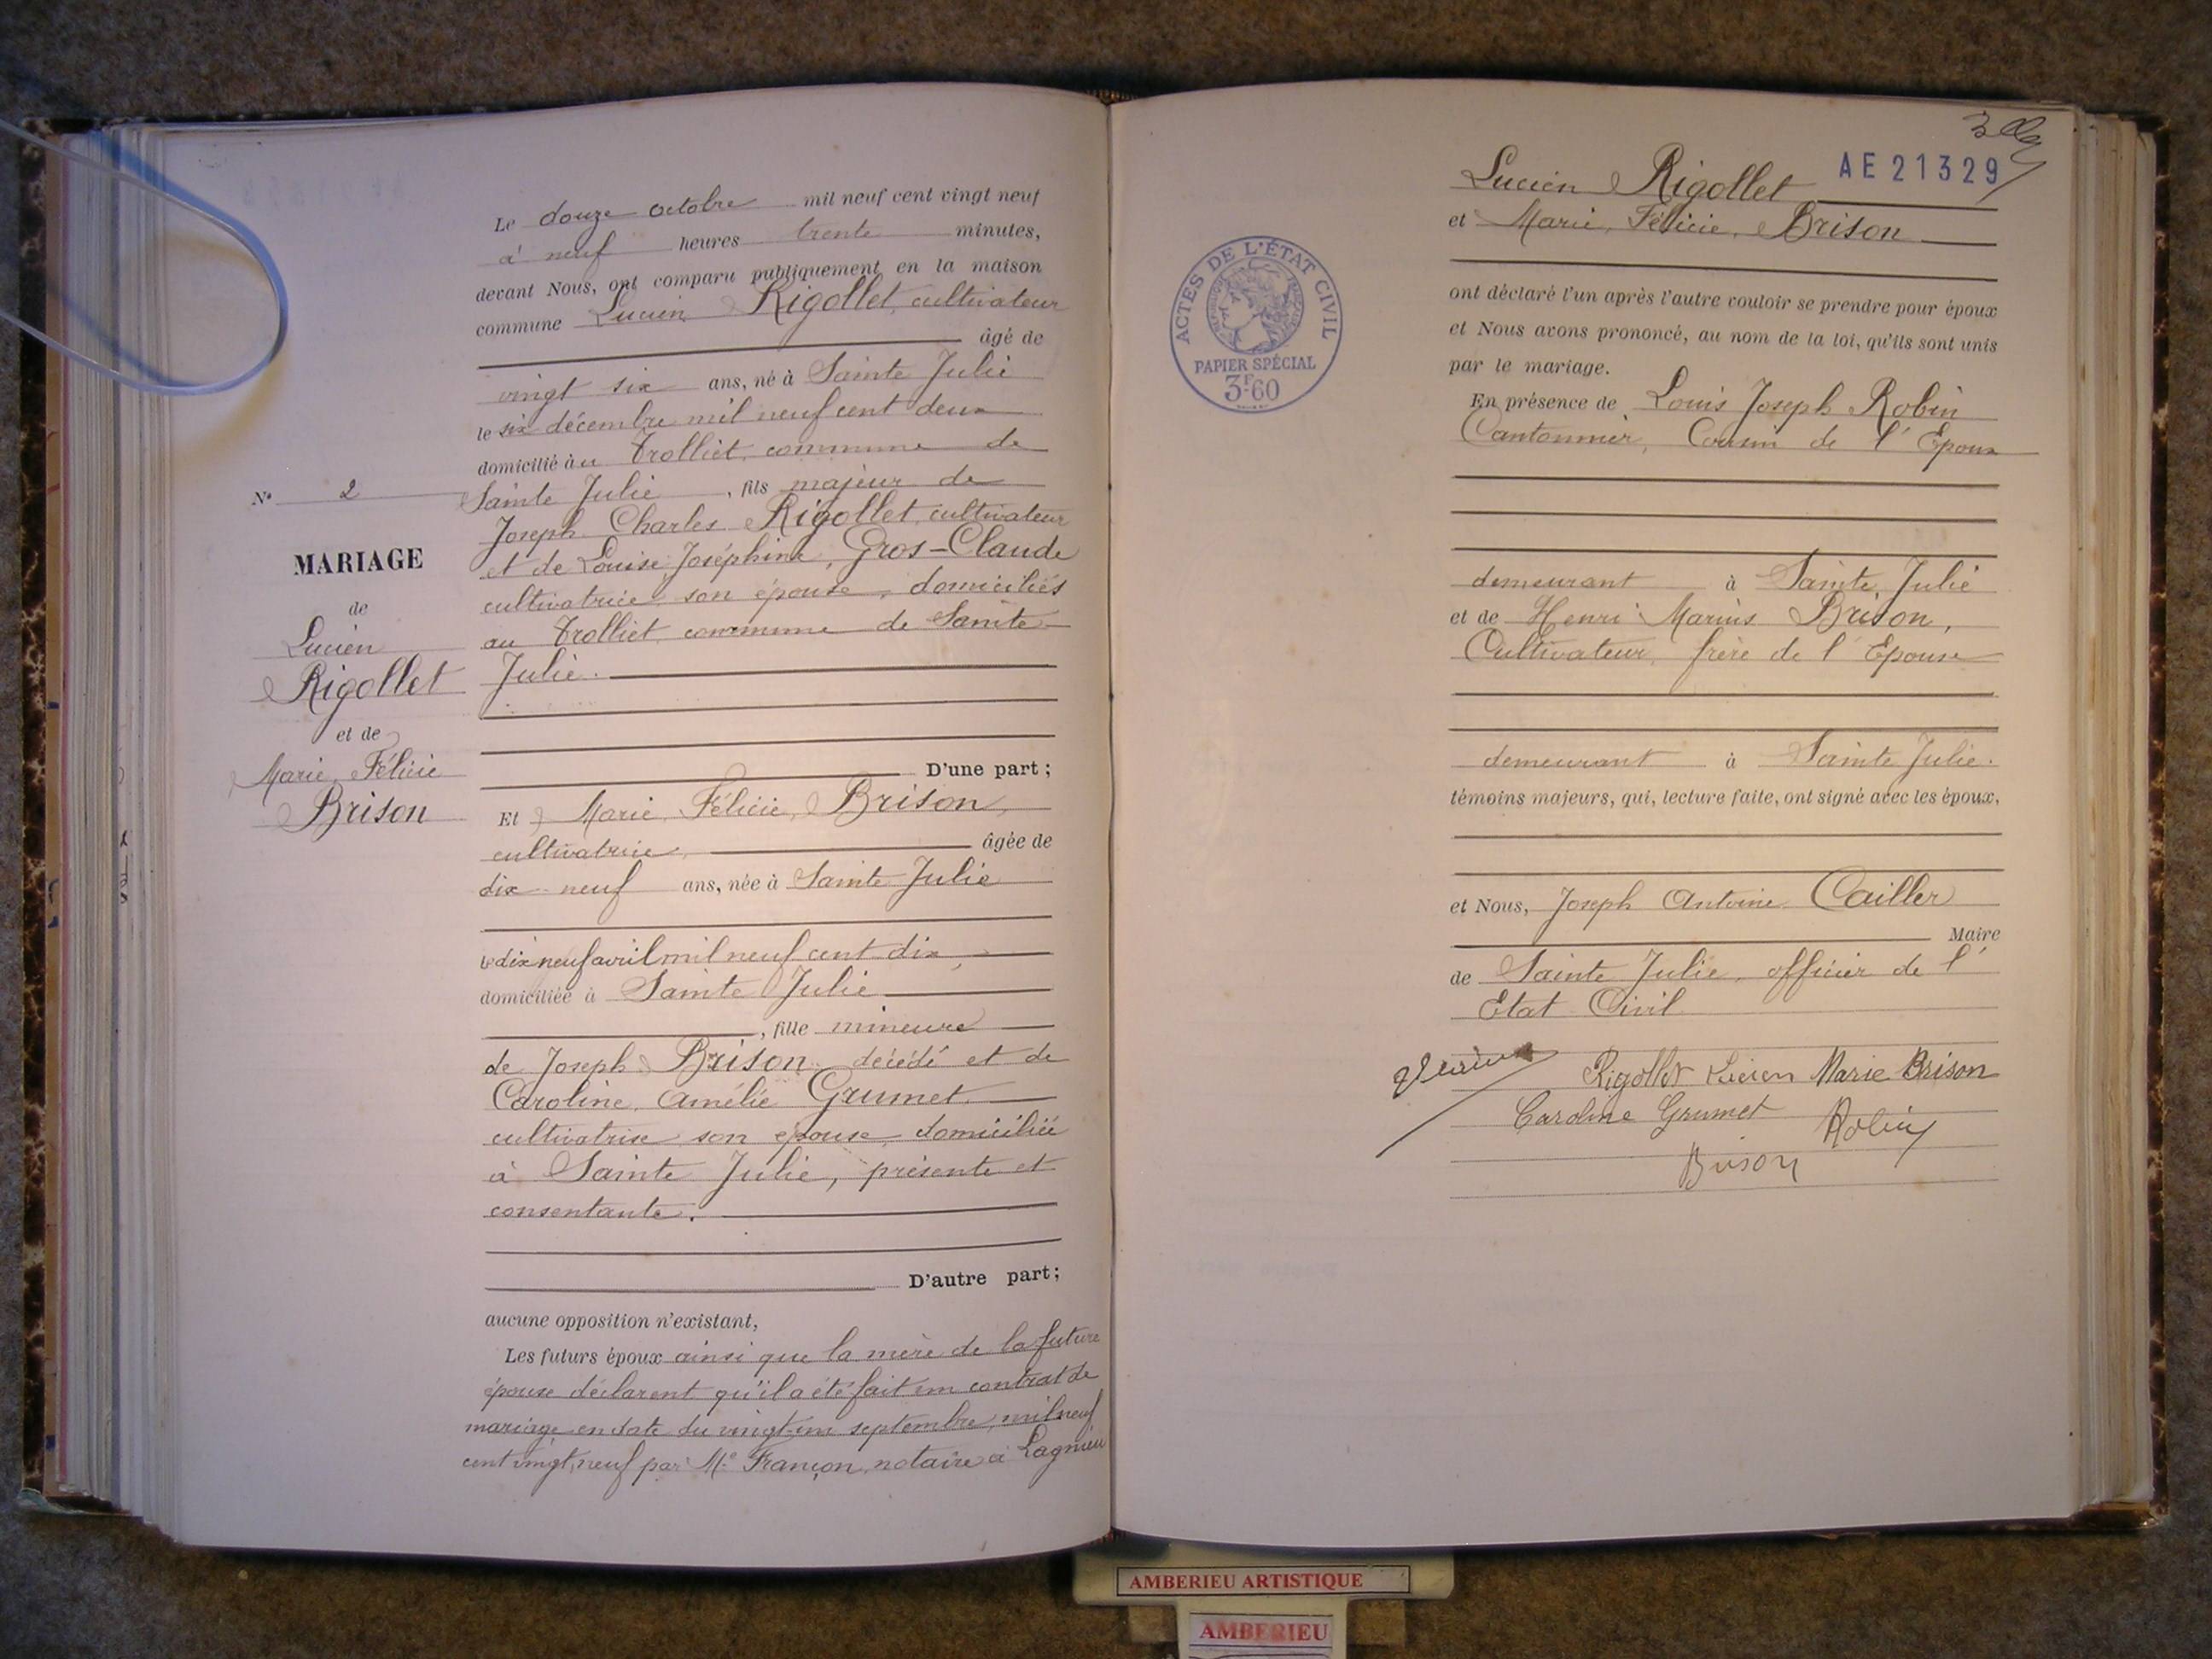 Le douze octobre mil neuf cent vingt neuf
à neuf heures trente minutes,
devant Nous, ont comparu publiquement en la maison
commune Lucien Rigollet, cultivateur
âgé de
vingt six ans, né à Sainte Julie
le six décembre mil neuf cent deux
domicilié au Trolliet, commune de
Sainte Julie, fils majeur de
Joseph Charles Rigollet, cultivateur
et de Louise Joséphine, Gros-Claude
cultivatrice, son épouse, domiciliés
au Trolliet commune de Sainte
Julie.
N° 2
MARIAGE
de
Lucien
Rigollet
et de
Marie, Félicie
Brison
D'une part;
Et Marie, Félicie, Brison,
cultivatrice, âgée de
dix neuf ans, née à Sainte Julie
le dix neuf avril mil neuf cent dix,
domiciliée à Sainte Julie
, fille mineure
de Joseph Brison décédé et de
Caroline, Amélie Grumet,
cultivatrice son épouse, domiciliée
à Sainte Julie, présente et
consentante.
D'autre part;
aucune opposition n'existant,
Les futurs époux ainsi que la mère de la future
épouse déclarent qu'il a été fait un contrat de
mariage en date du vingt-un septembre, mil neuf
cent vingt, neuf par Me Françon, notaire à Lagnieu
AE21329
Lucien Rigollet
et Marie, Félicie, Brison
ACTES DE L'ÉTAT CIVIL
PAPIER SPÉCIAL
3F60
ont déclaré l'un après l'autre vouloir se prendre pour époux
et Nous avons prononcé, au nom de la loi, qu'ils sont unis
par le mariage.
En présence de Louis Joseph Robin
Cantonnier, Cousin de l'Epoux
demeurant à Sainte Julie
et de Henri Marius Brison,
Cultivateur, frère de l'Epouse
demeurant à Sainte Julie.
témoins majeurs, qui, lecture faite, ont signé avec les époux,
et Nous, Joseph Antoine Cailler
Maire
de Sainte Julie, officier de l'
Etat Civil
Rigollet Lucien Marie Brison
Caroline Grumet Robin
Brison
AMBERIEU ARTISTIQUE
AMBERIEU